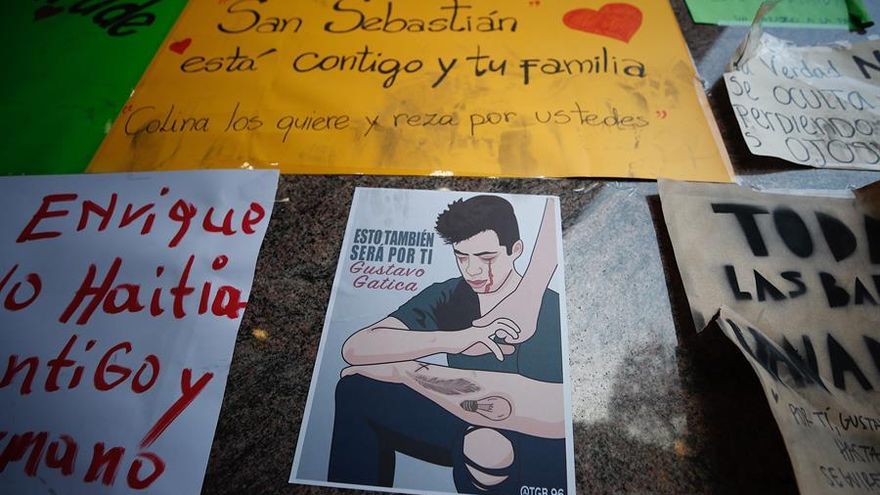 "San Sebastián"
está contigo y tu familia
"Colina los quiere y reza por ustedes"
Verdad
se oculta
perdiendo
OJOS
Enrique
Haití
contigo y
ESTO TAMBIÉN
SERÁ POR TI
Gustavo
Gatica
@TGR_96
TODA
LAS
POR TÍ, GUSTA
HASTA